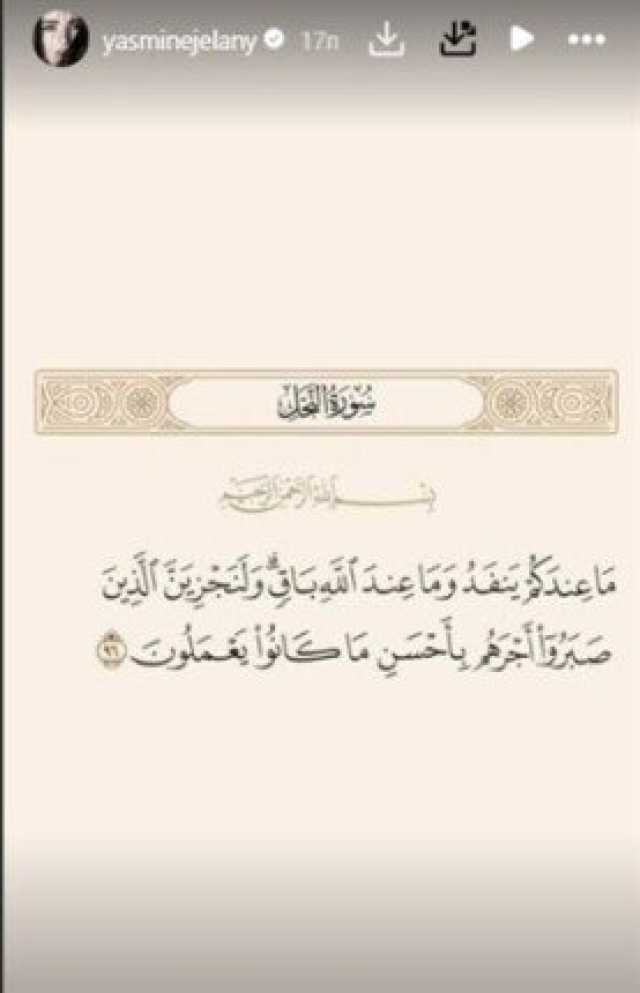 yasminejelany 17h
سُورَةُ النَّحْلِ
بِسْمِ اللَّهِ الرَّحْمَٰنِ الرَّحِيمِ
مَا عِندَكُمْ يَنفَدُ وَمَا عِندَ ٱللَّهِ بَاقٍۗ وَلَنَجْزِيَنَّ ٱلَّذِينَ
صَبَرُوٓا۟ أَجْرَهُم بِأَحْسَنِ مَا كَانُوا۟ يَعْمَلُونَ ٩٦